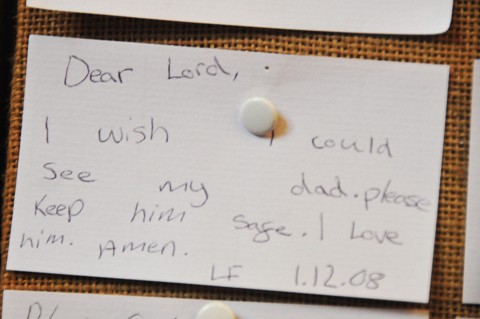 Dear Lord,
I wish I could
see my dad. please
Keep him sage. I Love
him. Amen.
LF 1.12.08